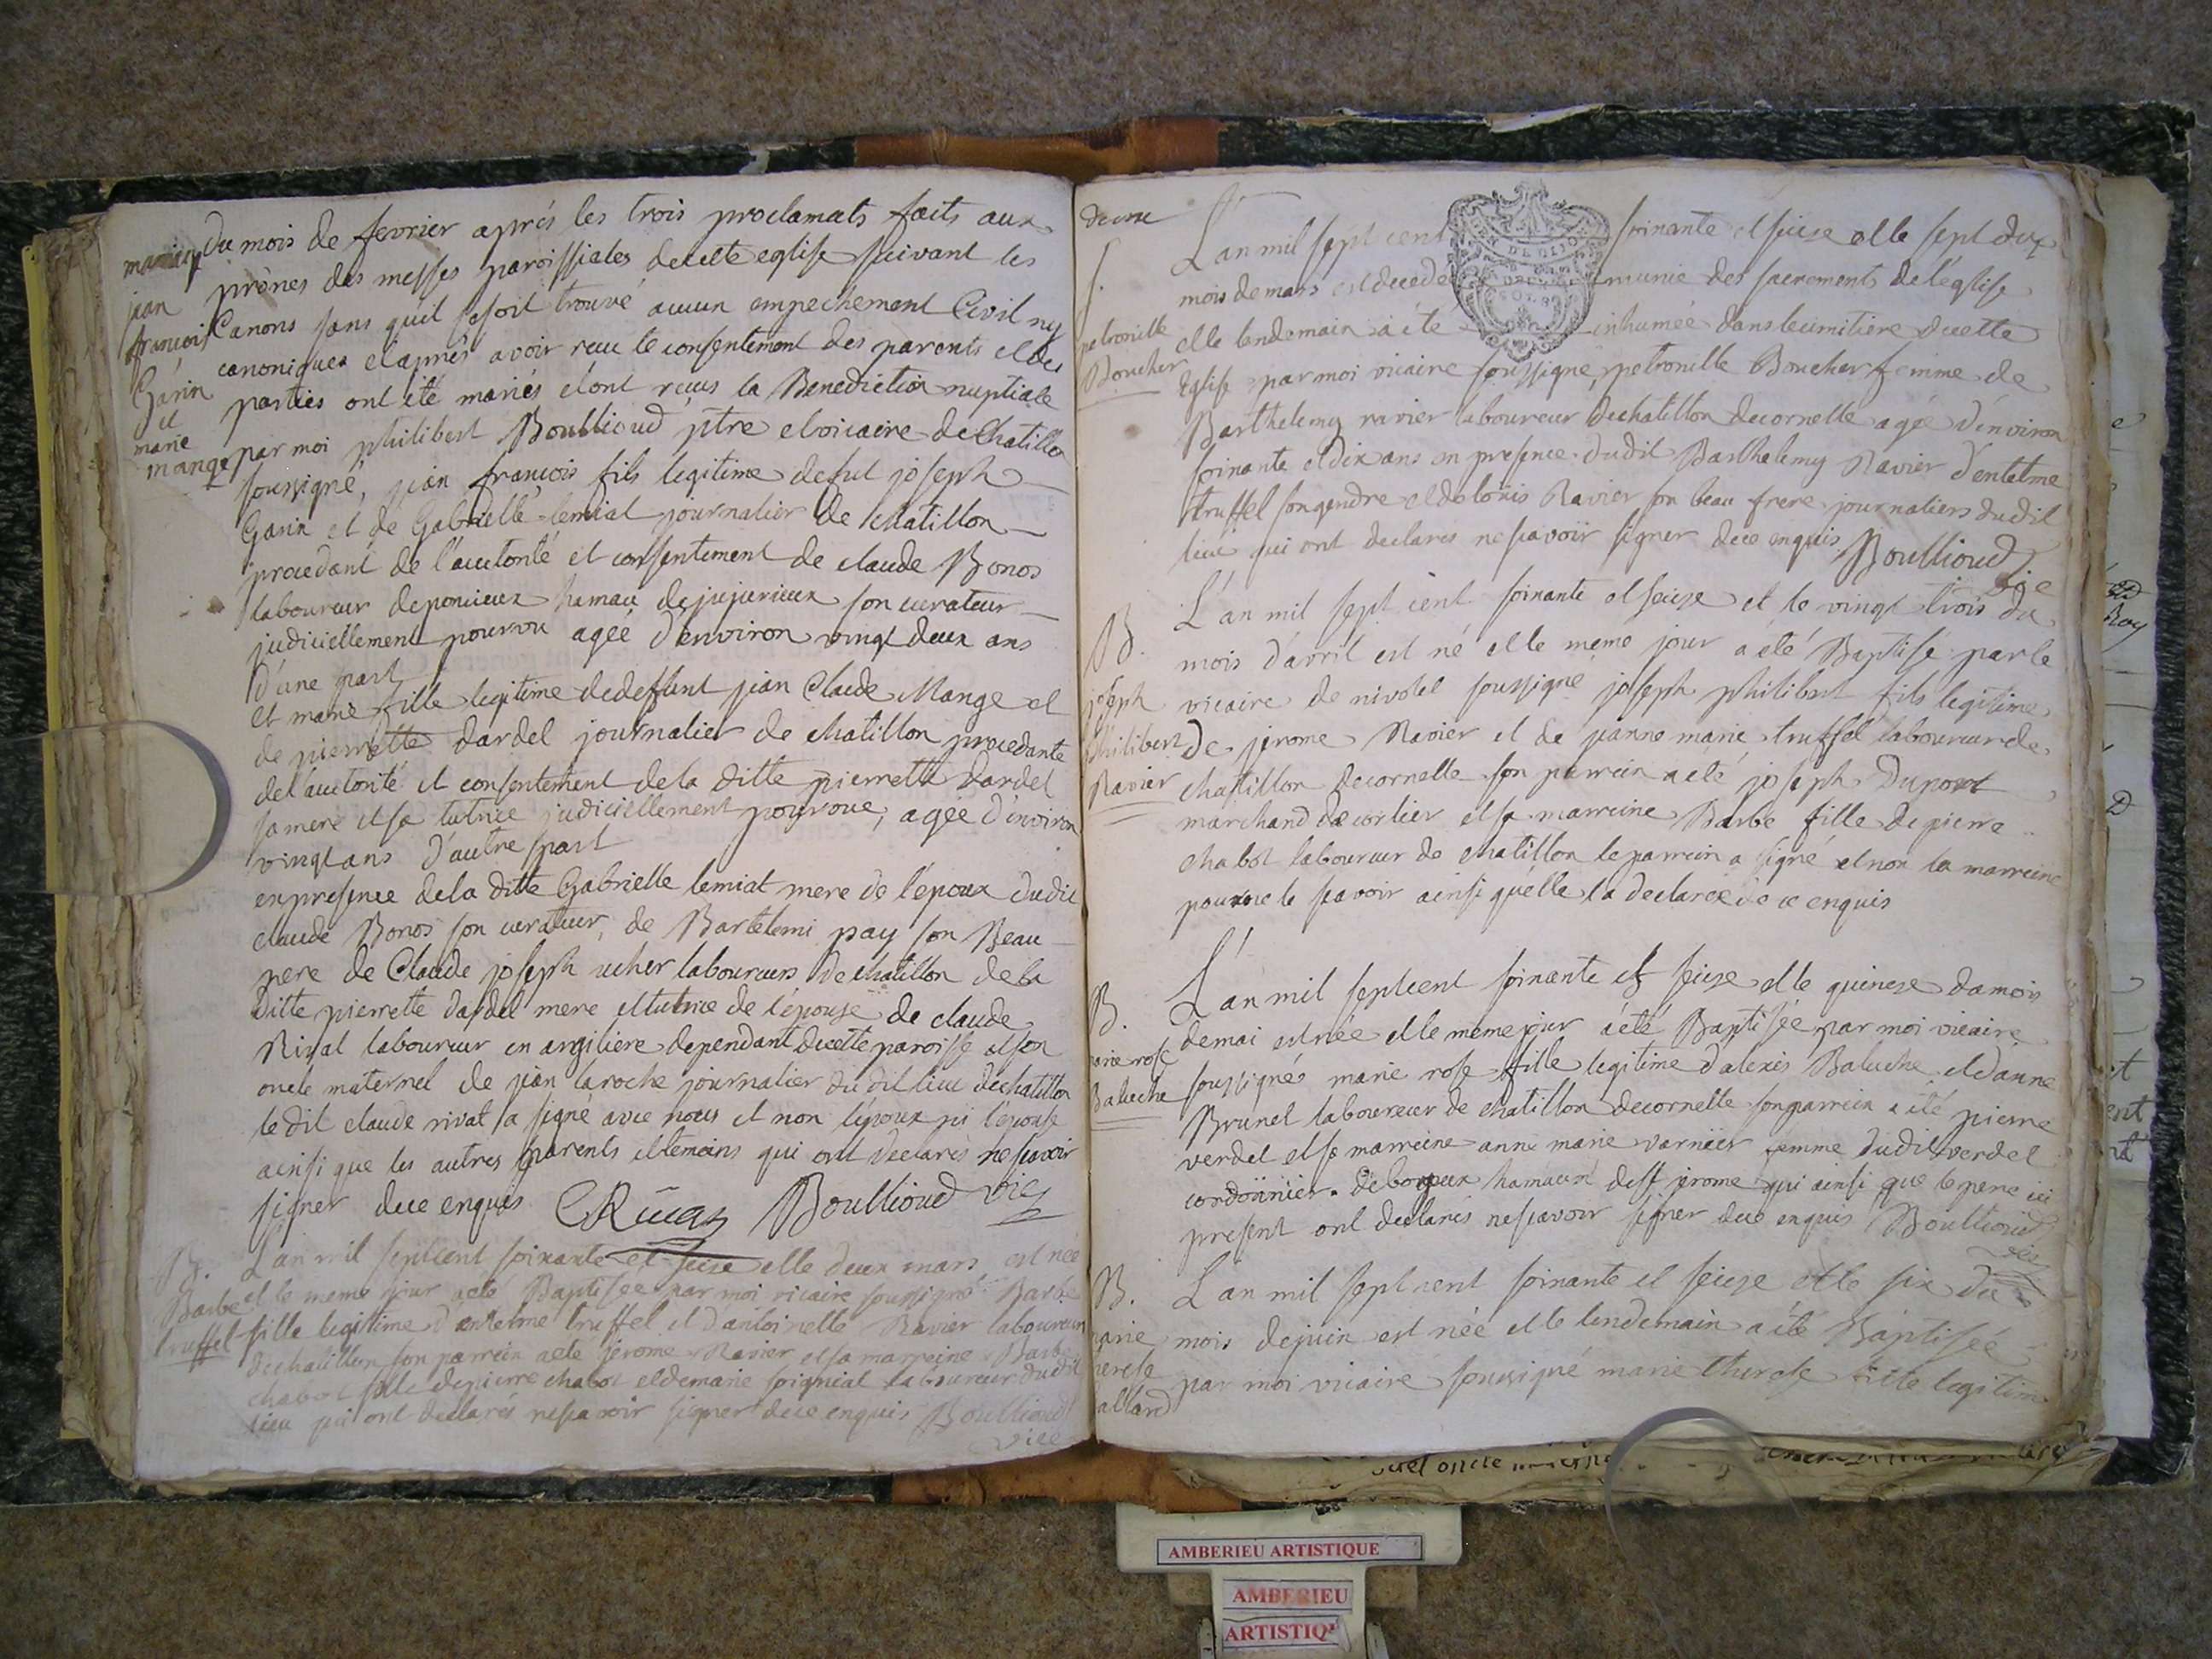 mariage
jean
francois
Garin
et
marie
mange
du mois de fevrier aprés les trois proclamats faits aux
prônes des messes paroissiales decette eglise suivant les
Canons sans quil sesoit trouvé aucun empechement Civil ny
canonique et aprés avoir recu le consentement des parents et des
parties ont été mariés et ont recus la Benediction nuptiale
par moi philibert Boullioud ptre et vicaire de Chatillon
soussigné, jean francois fils legitime defut joseph
Garin et de Gabrielle lemiat journalier de chatillon
procedant de l'auctorité et consentement de claude Bonos
laboureur deponcieux hamau dejujurieux son curateur
judiciellement pourvou agée d'environ vingt deux ans
d'une part
et marie fille legitime dedeffunt jean Claude Mange et
de pierrette dardel journalier de chatillon procedante
del'auctorité et consentement dela ditte pierrette dardel
sa mere et sa tutrice judiciellement pourvoue, agée d'environ
vingt ans d'autre part
enpresence dela ditte Gabrielle lemiat mere de l'époux dudit
claude Bonos son curateur, de Bartelemi pay son Beau
pere de Claude joseph ucher laboureurs de chatillon dela
ditte pierrette dardel mere et tutrice de l'épouse de claude
Rival laboureur en argiliere dependant decette paroisse et son
oncle maternel de jean laroche journalier du dit lieu dechatillon
le dit claude rival a signé avec nous et non l'époux ni l'épouse
ainsi que les autres parents et temoins qui ont declarés nesavoir
signer dece enquis Boullioud vic
B.
Barbe
truffel
L'an mil septcent soixante et seize et le deux mars est née
et le meme jour aeté Baptisée par moi vicaire soussigné Barbe
fille legitime d'antelme truffel et d'antoinette Ravier laboureur
dechatillon son parrein aeté jerome Ravier et sa marreine Barbe
chabot fille depierre chabot et demarie soigniat laboureur dudit
lieu qui ont declarés nesavoir signer dece enquis Boullioud
vice
S.
petronille
Boucher
L'an mil sept cent soixante et seize et le sept du
mois demars est decedé munie des sacrements del'église
et le lendemain a été inhumée dans lecimitiere decette
Eglise par moi vicaire soussigné, petronille Boucher femme de
Barthelemy ravier laboureur dechatillon decornelle agée d'environ
soixante et dix ans en presence dudit Barthelemy Ravier d'entelme
truffel songendre et delouis Ravier son beau frere journaliers dudit
lieu qui ont declarés nesavoir signer dece enquis Boullioud
vice
B.
joseph
Philibert
Ravier
L'an mil sept cent soixante et seize et le vingt trois du
mois d'avril est né et le meme jour a été Baptisé par le
vicaire de nivolet soussigné joseph philibert fils legitime
de jerome Ravier et de jeanne marie truffel laboureur de
chatillon decornelle son parrein aeté joseph Dupont
marchand de corlier et sa marreine Barbe fille de pierre
chabot laboureur de chatillon le parrein a signé et non la marreine
pour ne le savoir ainsi quélle la declarée de ce enquis
B.
marie rose
Baluche
L'an mil septcent soixante et seize et le quinze du mois
demai est née et le meme jour a été Baptisée par moi vicaire
soussigné marie rose fille legitime d'alexis Baluche et d'anne
Brunel laboureur de chatillon decornelle son parrein a été pierre
verdel et sa marreine anne marie varnier femme dudit verdel
cordonnier deboyeux hamau de st jerome qui ainsi que le pere ici
present ont declarés nesavoir signer dece enquis Boullioud
vic
B.
marie
therese
allard
L'an mil sept cent soixante et seize et le six du
mois dejuin est née et le lendemain a été Baptisée
par moi vicaire soussigné marie therese fille legitime
AMBERIEU ARTISTIQUE
AMBERIEU
ARTISTIQ